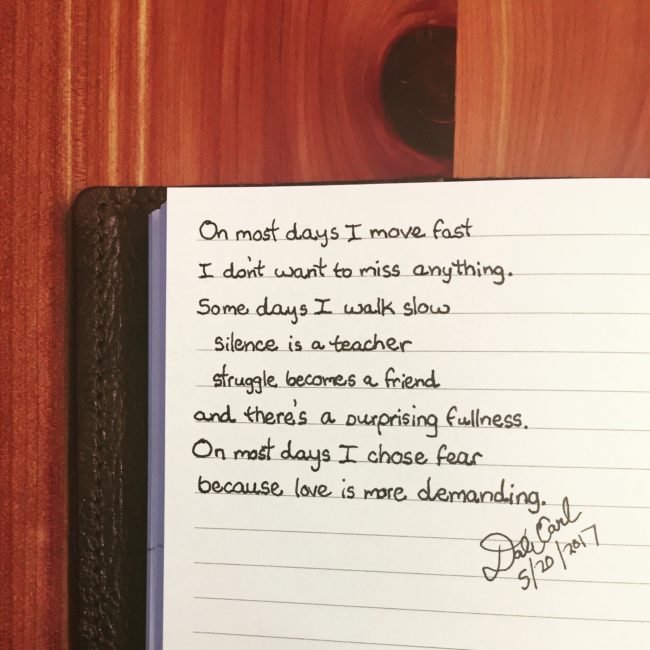 On most days I move fast
I don't want to miss anything.
Some days I walk slow
silence is a teacher
struggle becomes a friend
and there's a surprising fullness.
On most days I chose fear
because love is more demanding.
Dale Carl
5/20/2017